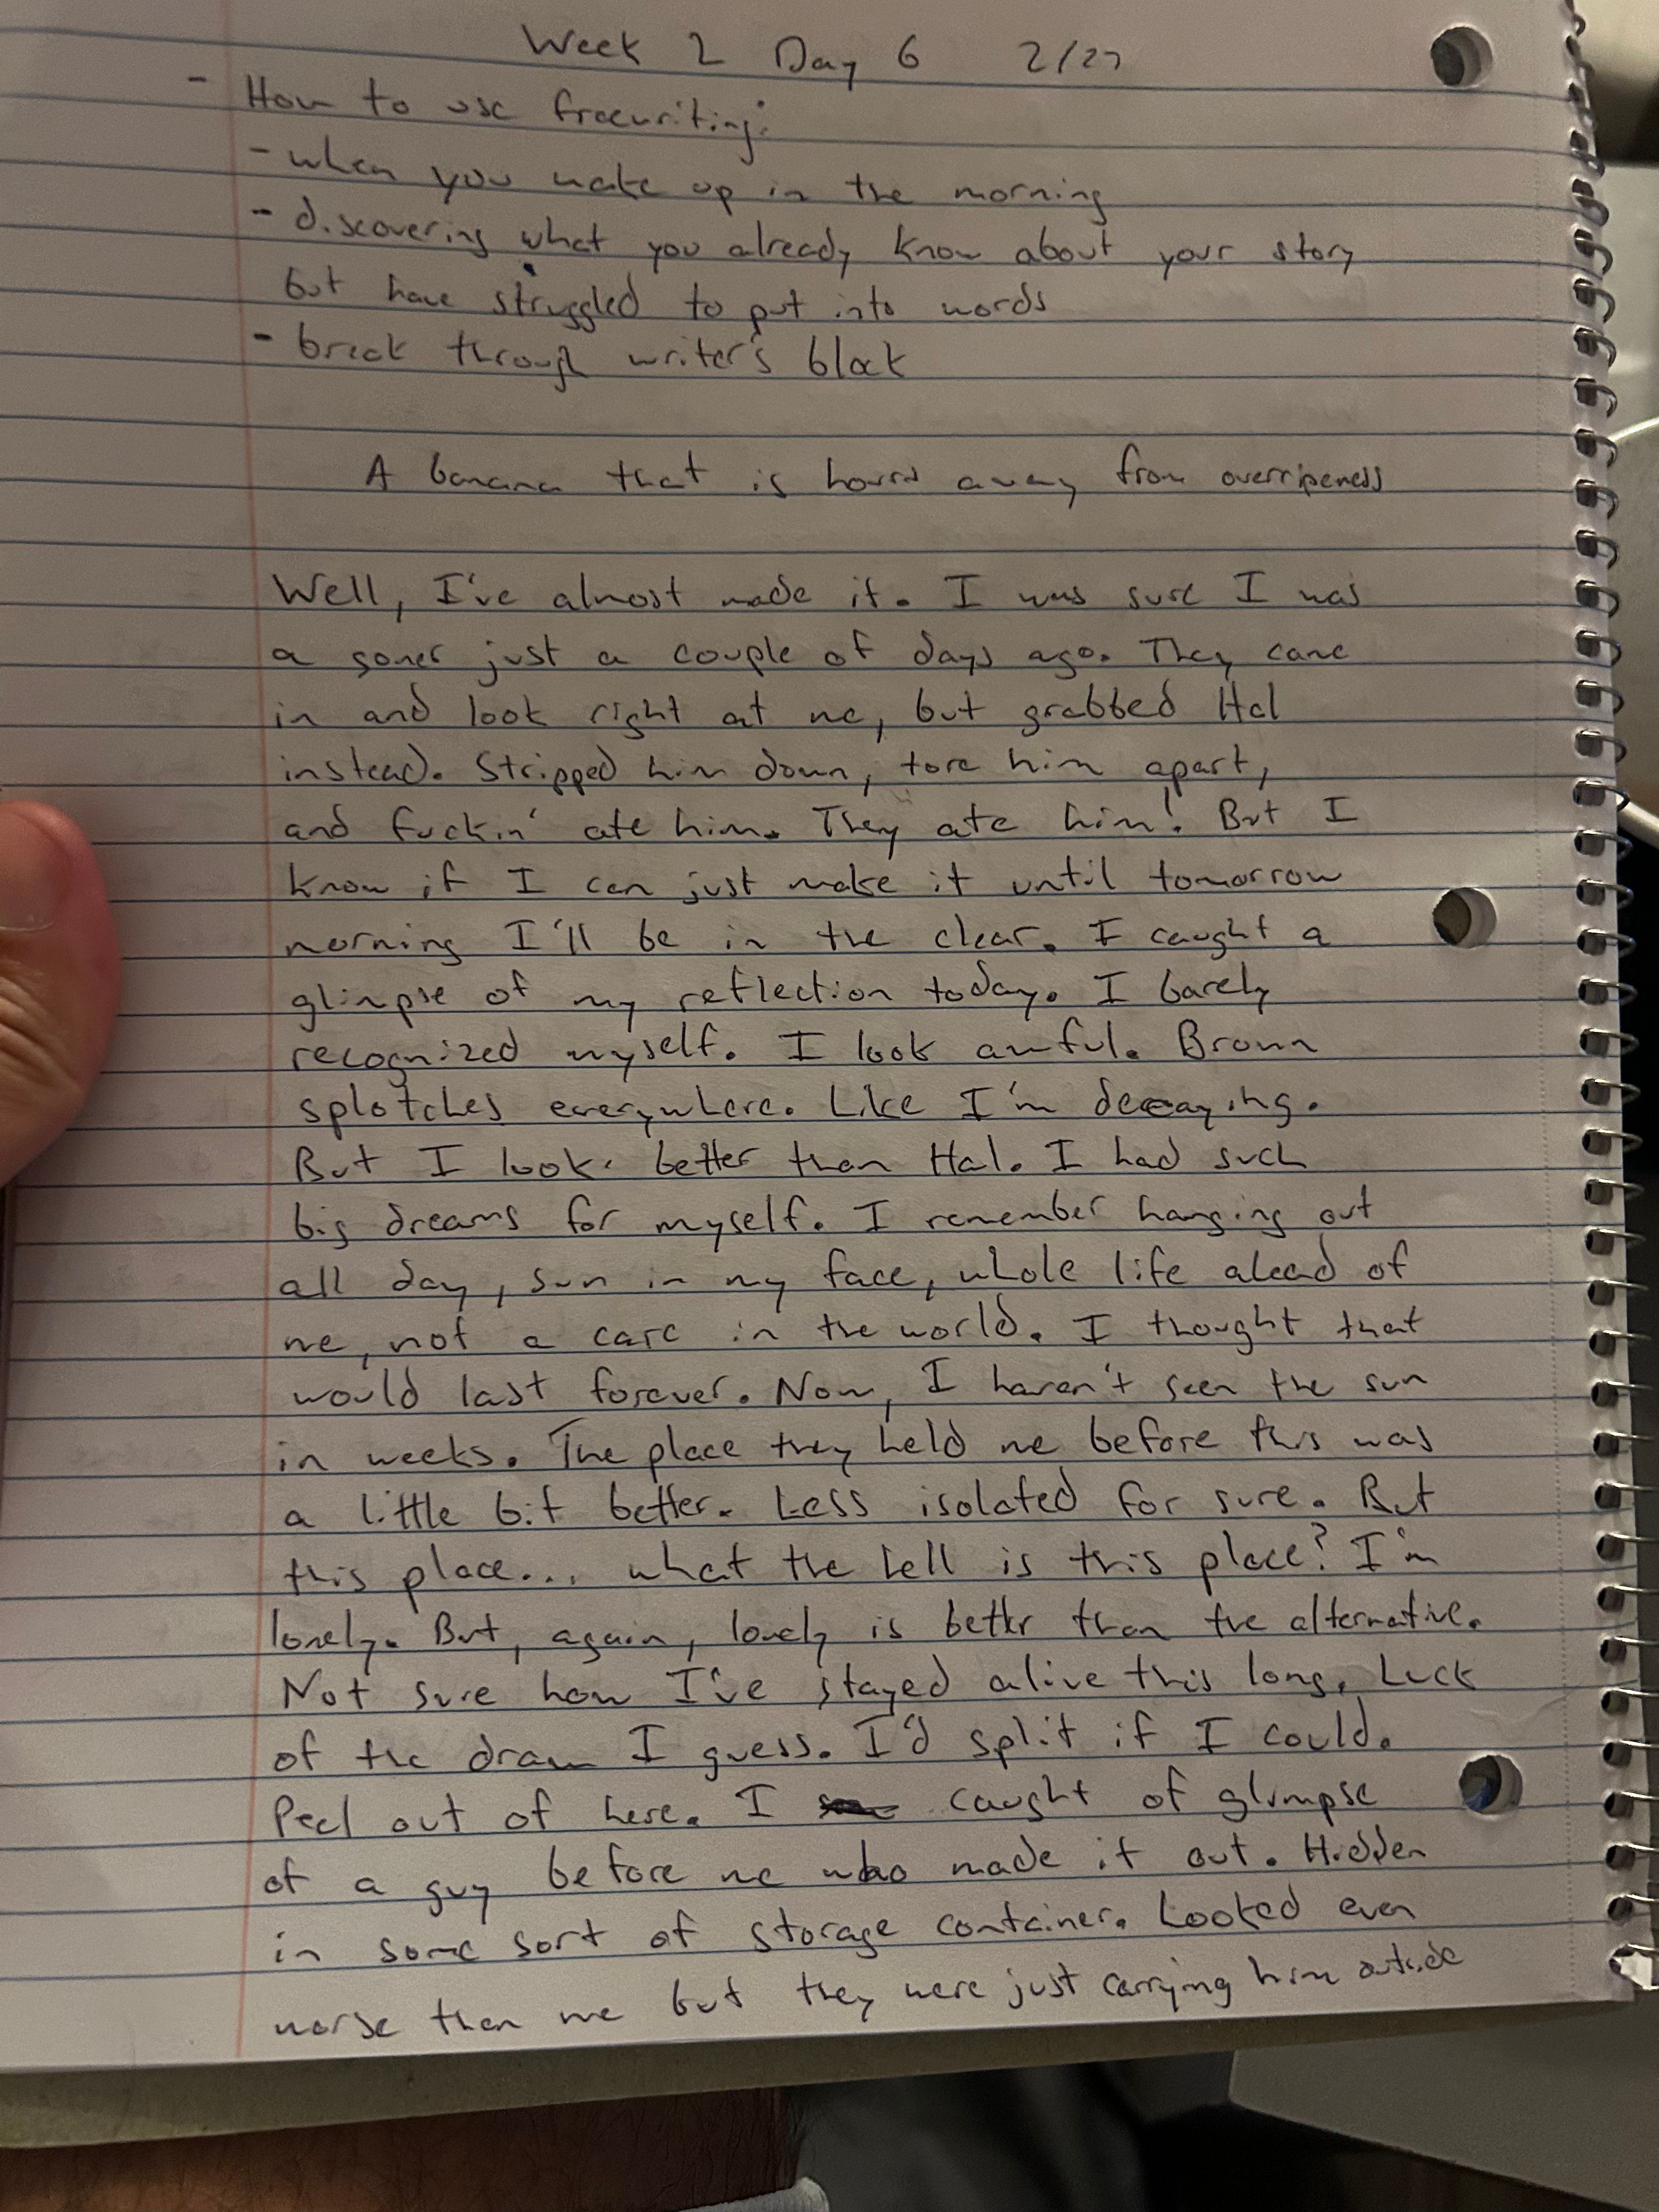 Week 2 Day 6 2/27
- How to use freewriting:
- when you wake up in the morning
- discovering what you already know about your story
but have struggled to put into words
- break through writer's block
A banana that is hours away from overripeness
Well, I've almost made it. I was sure I was
a goner just a couple of days ago. They came
in and look right at me, but grabbed Hal
instead. Stripped him down, tore him apart,
and fuckin' ate him. They ate him! But I
know if I can just make it until tomorrow
morning I'll be in the clear. I caught a
glimpse of my reflection today. I barely
recognized myself. I look awful. Brown
splotches everywhere. Like I'm decaying.
But I look better than Hal. I had such
big dreams for myself. I remember hanging out
all day, sun in my face, whole life ahead of
me, not a care in the world. I thought that
would last forever. Now, I haven't seen the sun
in weeks. The place they held me before this was
a little bit better. Less isolated for sure. But
this place... what the hell is this place? I'm
lonely. But, again, lonely is better than the alternative.
Not sure how I've stayed alive this long. Luck
of the draw I guess. I'd split if I could.
Peel out of here. I caught of glimpse
of a guy before me who made it out. Hidden
in some sort of storage container. Looked even
worse than me but they were just carrying him outside